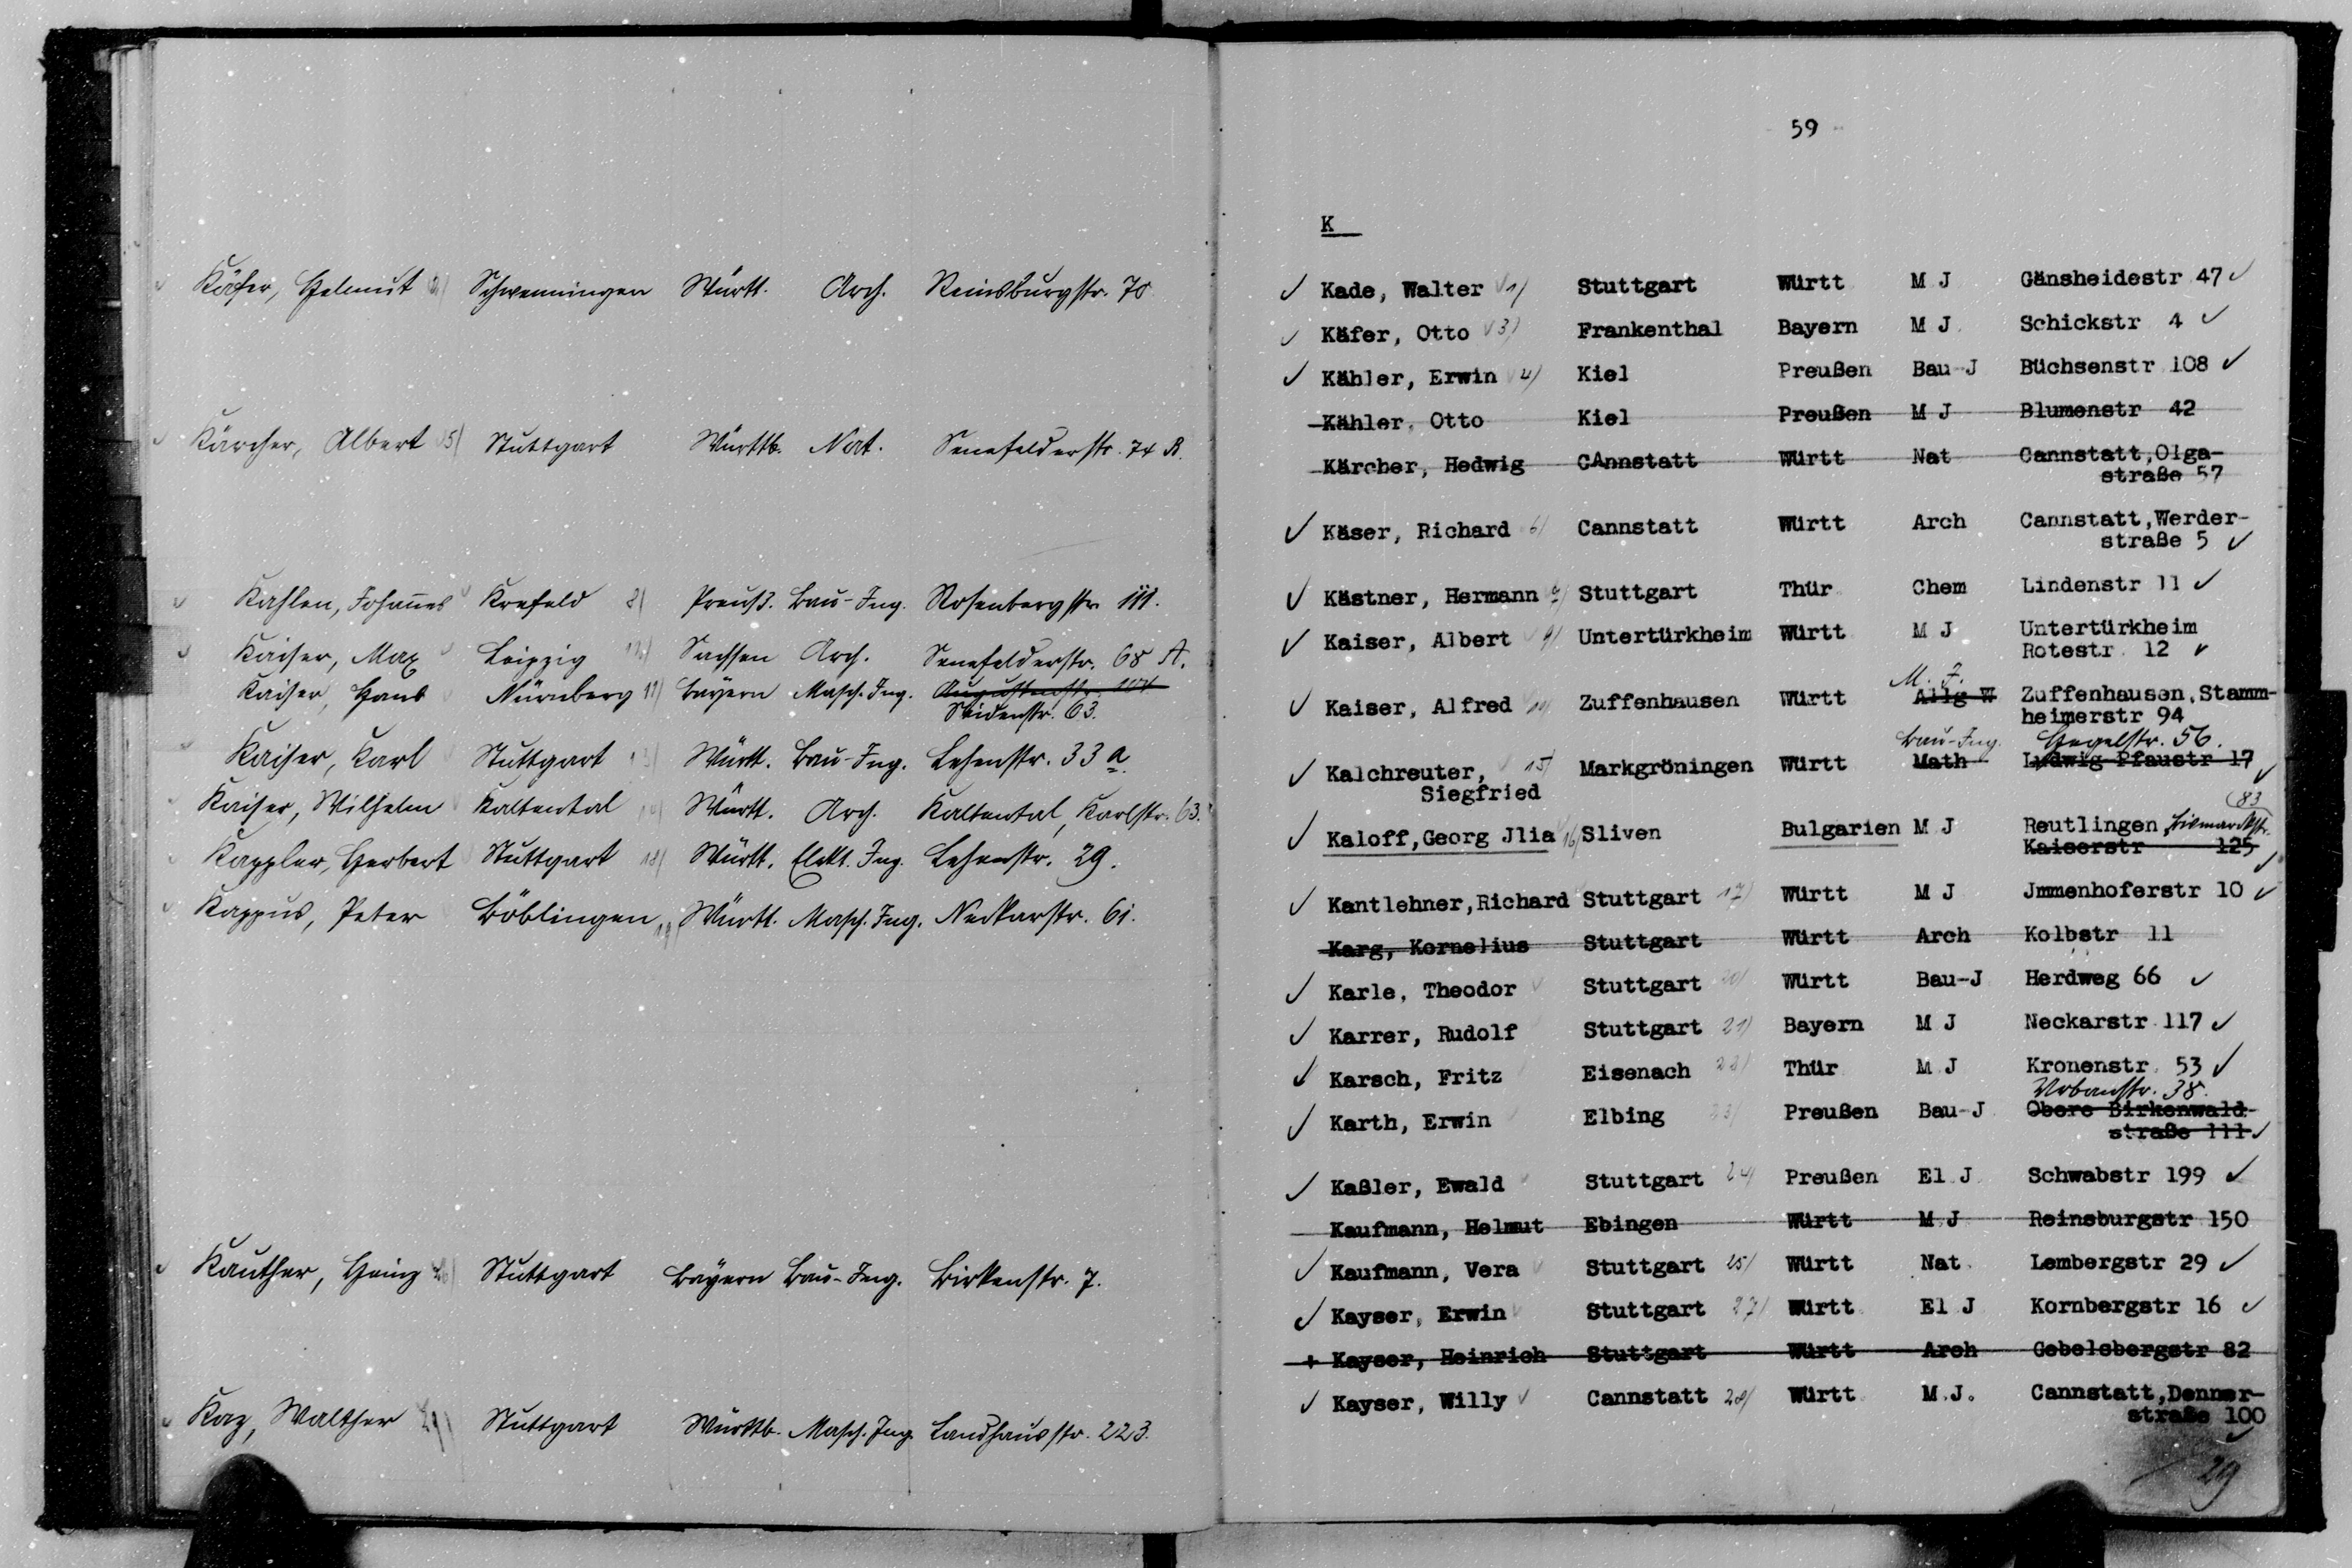 Käfer, Helmut 2) Schwenningen Württ. Arch. Reinsburgstr. 70
Kärcher, Albert 5) Stuttgart Württb. Nat. Senefelderstr. 74 B.
Kahlen, Johannes Krefeld 8) Preuß. Bau-Ing. Rosenbergstr. 111.
Kaiser, Max Leipzig 12) Sachsen Arch. Senefelderstr. 68 A.
Kaiser, Hans Nürnberg 11) Bayern Masch. Ing. Augustenstr. 104
Seidenstr. 63.
Kaiser, Karl Stuttgart 13) Württ. Bau-Ing. Lehenstr. 33 a.
Kaiser, Wilhelm Kaltental 14) Württ. Arch. Kaltental, Karlstr. 63.
Kappler, Herbert Stuttgart 18) Württ. Elekt. Ing. Lehenstr. 29.
Kappus, Peter Böblingen 19) Württ. Masch. Ing. Neckarstr. 61.
Kauther, Heinz 26) Stuttgart Bayern Bau-Ing. Birkenstr. 7.
Kaz, Walther 29) Stuttgart Württb. Masch. Ing. Landhausstr. 223.
59
K
Kade, Walter 1) Stuttgart Württ M J Gänsheidestr 47
Käfer, Otto 3) Frankenthal Bayern M J Schickstr 4
Kähler, Erwin 4) Kiel Preußen Bau-J Büchsenstr 108
Kähler, Otto Kiel Preußen M J Blumenstr 42
Kärcher, Hedwig CAnnstatt Württ Nat Cannstatt,Olga-
straße 57
Käser, Richard 6) Cannstatt Württ Arch Cannstatt,Werder-
straße 5
Kästner, Hermann 7) Stuttgart Thür Chem Lindenstr 11
Kaiser, Albert 9) Untertürkheim Württ M J Untertürkheim
Rotestr 12
M. J.
Kaiser, Alfred 10) Zuffenhausen Württ Allg W Zuffenhausen,Stamm-
heimerstr 94
Bau-Ing. Hegelstr. 56.
Kalchreuter, 15) Markgröningen Württ Math Ludwig Pfaustr 17
Siegfried
83
Kaloff,Georg Jlia 16) Sliven Bulgarien M J Reutlingen Bismarckstr.
Kaiserstr 125
Kantlehner,Richard Stuttgart 17) Württ M J Jmmenhoferstr 10
Karg, Kornelius Stuttgart Württ Arch Kolbstr 11
Karle, Theodor Stuttgart 20) Württ Bau-J Herdweg 66
Karrer, Rudolf Stuttgart 21) Bayern M J Neckarstr 117
Karsch, Fritz Eisenach 22) Thür M J Kronenstr 53
Urbanstr. 38.
Karth, Erwin Elbing 23) Preußen Bau-J Obere Birkenwald-
straße 111
Kaßler, Ewald Stuttgart 24) Preußen El J Schwabstr 199
Kaufmann, Helmut Ebingen Württ M J Reinsburgstr 150
Kaufmann, Vera Stuttgart 25) Württ Nat Lembergstr 29
Kayser, Erwin Stuttgart 27) Württ El J Kornbergstr 16
+ Kayser, Heinrich Stuttgart Württ Arch Gebelsbergstr 82
Kayser, Willy Cannstatt 28) Württ M.J. Cannstatt,Denner-
straße 100
29